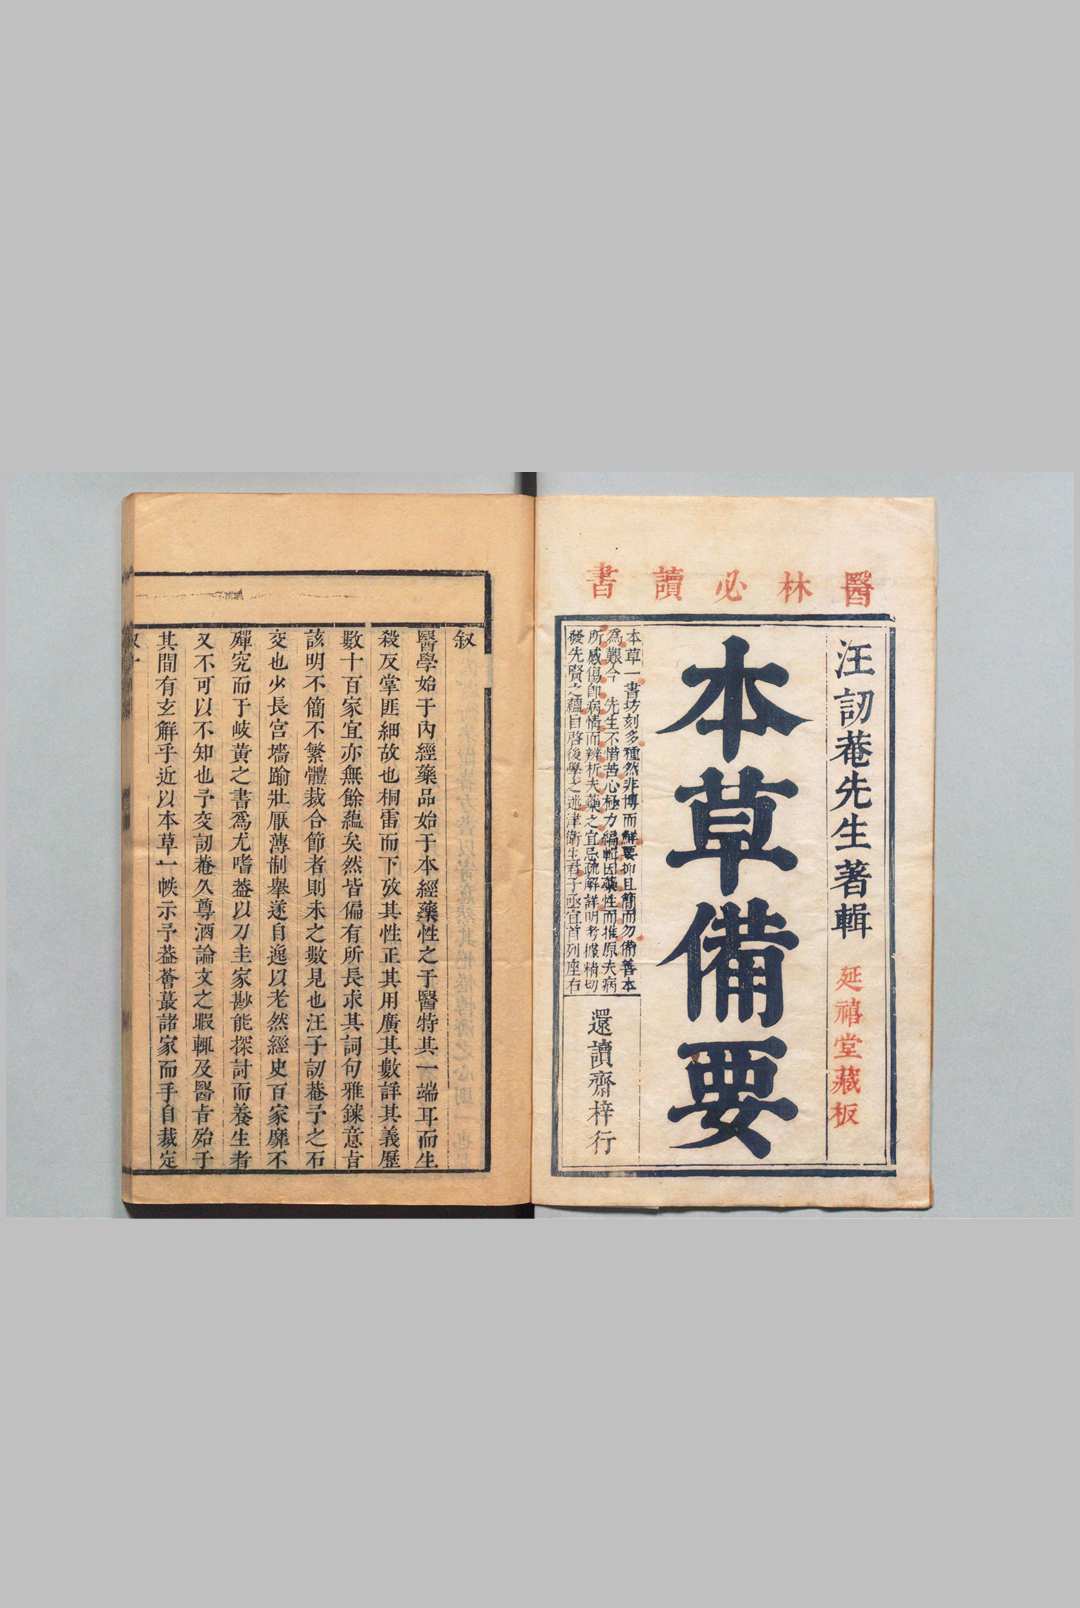 醫林必讀書
汪訒菴先生著輯
延禧堂藏板
本草備要
本草一書坊刻多種然非博而鮮要抑且簡而勿備善本
為艱今 先生不惜苦心極力編輯因藥性而推原夫病
所感傷卽病情而辨析夫藥之宜忌疏解詳明考據精切
發先賢之蘊自啓後學之迷津衛生君子亟宜首列座右
還讀齋梓行
叙
醫學始于內經藥品始于本經藥性之于醫特其一端耳而生
殺反掌匪細故也桐雷而下攷其性正其用廣其數詳其義歷
數十百家宜亦無餘蘊矣然皆偏有所長求其詞句雅鍊意旨
該明不簡不繁體裁合節者則未之數見也汪子訒菴予之石
交也少長宮墻踰壯厭薄制舉遂自逸以老然經史百家靡不
殫究而于岐黃之書爲尤嗜葢以刀圭家尠能探討而養生者
又不可以不知也予交訒菴久尊酒論文之暇輒及醫旨殆于
其間有玄解乎近以本草一帙示予葢薈蕞諸家而手自裁定